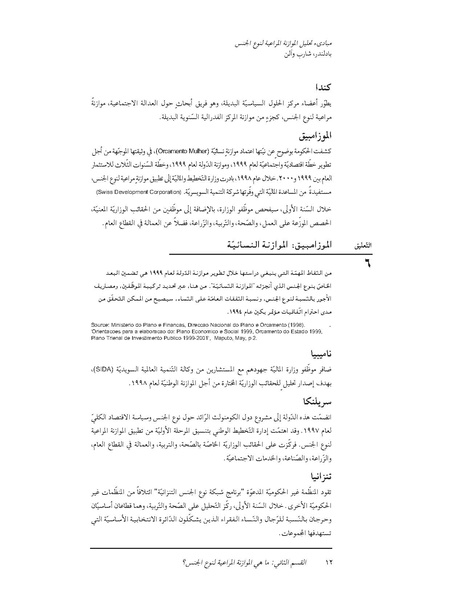 مبادىء تحليل الموازنة المراعية لنوع الجنس
بادلندر، شارب وآلن
كندا
يطوّر أعضاء مركز الحلول السياسيّة البديلة، وهو فريق أبحاث حول العدالة الاجتماعية، موازنةً
مراعية لنوع الجنس، كجزء من موازنة المركز الفدرالية السّنوية البديلة.
الموزامبيق
كشفت الحكومة بوضوح عن نيّتها اعتماد موازنةٍ نسائيّة (Orcamento Mulher)، في وثيقتها الموجّهة من أجل
تطوير خطّة اقتصاديّة واجتماعيّة لعام ١٩٩٩، وموازنة الدّولة لعام ١٩٩٩، وخطّة السّنوات الثّلاث للاستثمار
العام بين ١٩٩٩ و٢٠٠٠. خلال عام ١٩٩٨، بادرت وزارة التّخطيط والماليّة إلى تطبيق موازنةٍ مراعية لنوع الجنس،
مستفيدةً من المساعدة الماليّة التي وفّرتها شركة التنمية السويسريّة. (Swiss Development Corporation)
خلال السّنة الأولى، سيفحص موظّفو الوزارة، بالإضافة إلى موظّفين من الحقائب الوزاريّة المعنيّة،
الحصص الموزّعة على العمل، والصّحة، والتّربية، والزّراعة، فضلاً عن العمالة في القطاع العام.
التّعليق
الموزامبيق: الموازنة النسائيّة
٦
من النّقاط المهمّة التي ينبغي دراستها خلال تطوير موازنة الدّولة لعام ١٩٩٩ هي تضمين البعد
الخاصّ بنوع الجنس الذي أنجزته "الموازنة النّسائيّة". من هنا، عبر تحديد تركيبة الموظّفين، ومصاريف
الأجور بالنّسبة لنوع الجنس، ونسبة النّفقات العامّة على النّساء، سيصبح من الممكن التّحقّق من
مدى احترام اتّفاقيات مؤتمر بكين عام ١٩٩٤.
Source: Ministerio do Plano e Financas, Direccao Nacional do Plano e Orcamento (1998),
'Orientacoes para a elaboracao do: Plano Economico e Social 1999, Orcamento do Estado 1999,
Plano Trienal de Investimento Publico 1999-2001', Maputo, May, p.2.
ناميبيا
ضافر موظّفو وزارة الماليّة جهودهم مع المستشارين من وكالة التّنمية العالمية السويديّة (SIDA)،
بهدف إصدار تحليل للحقائب الوزاريّة المختارة من أجل الموازنة الوطنيّة لعام ١٩٩٨.
سريلنكا
انضمّت هذه الدّولة إلى مشروع دول الكومنولث الرّائد حول نوع الجنس وسياسة الاقتصاد الكلّيّ
لعام ١٩٩٧. وقد اهتمّت إدارة التّخطيط الوطني بتنسيق المرحلة الأوليّة من تطبيق الموازنة المراعية
لنوع الجنس. فركّزت على الحقائب الوزاريّة الخاصّة بالصّحة، والتربية، والعمالة في القطاع العام،
والزّراعة، والصّناعة، والخدمات الاجتماعيّة.
تنزانيا
تقود المنظّمة غير الحكوميّة المدعوّة "برنامج شبكة نوع الجنس التنزانيّة" ائتلافاً من المنظّمات غير
الحكوميّة الأخرى. خلال السّنة الأولى، ركّز التّحليل على الصّحة والتّربية، وهما قطاعان أساسيّان
وحرجان بالنّسبة للرّجال والنّساء الفقراء الذين يشكّلون الدّائرة الانتخابية الأساسيّة التي
تستهدفها المجموعات.
١٢ القسم الثاني: ما هي الموازنة المراعية لنوع الجنس؟